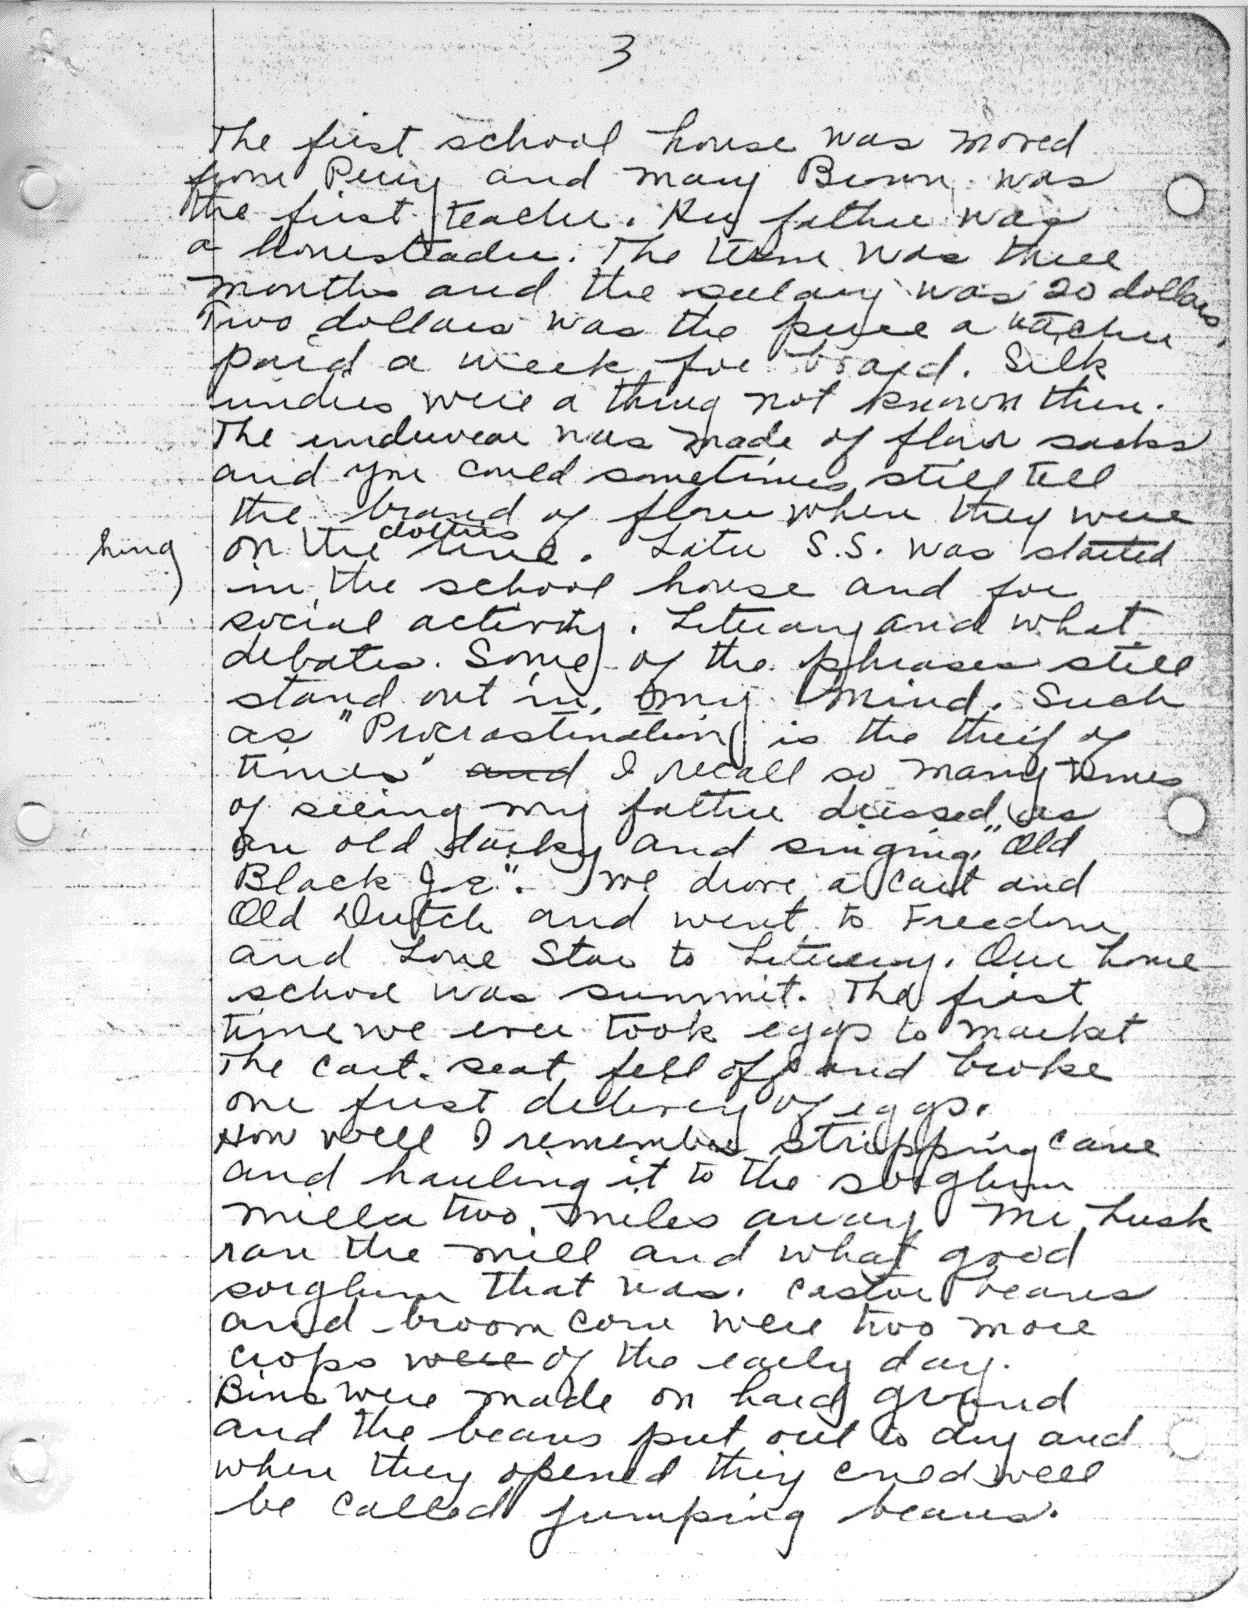 3
The first school house was moved
from Perry and Mary Brown was
the first teacher. Her father was
a homesteader. The term was three
months and the salary was 20 dollars.
Two dollars was the price a teacher
paid a week for board. Silk
undies were a thing not known then.
The underwear was made of flour sacks
and you could sometimes still tell
the brand of flour when they were
hung
on the clothes line. Later S.S. was started
in the school house and for
social activity. Literary and what
debates. Some of the phrases still
stand out in my mind. Such
as "Procrastination is the theif of
times" and I recall so many times
of seeing my father dressed as
an old darky and singing "Old
Black Joe". We drove a cart and
Old Dutch and went to Freedom
and Lone Star to Literary. Our home
school was summit. The first
time we ever took eggs to market
the cart seat fell off and broke
our first delivery of eggs.
How well I remember stripping cane
and hauling it to the sorghum
mill two miles away. Mr. Lusk
ran the mill and what good
sorghum that was. Castor beans
and broom corn were two more
crops were of the early day.
Bins were made on hard ground
and the beans put out to dry and
when they opened they could well
be called jumping beans.